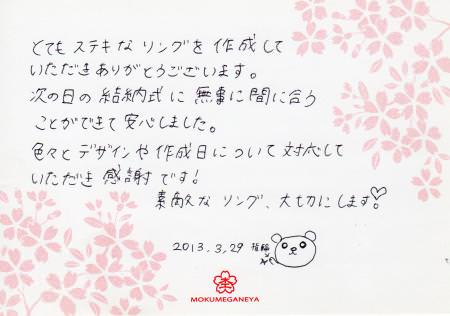 とてもステキなリングを作成して
いただきありがとうございます。
次の日の結納式に無事に間に合う
ことができて安心しました。
色々とデザインや作成日について対応して
いただき感謝です!
素敵なリング、大切にします♡
2013.3,29
MOKUMEGANEYA